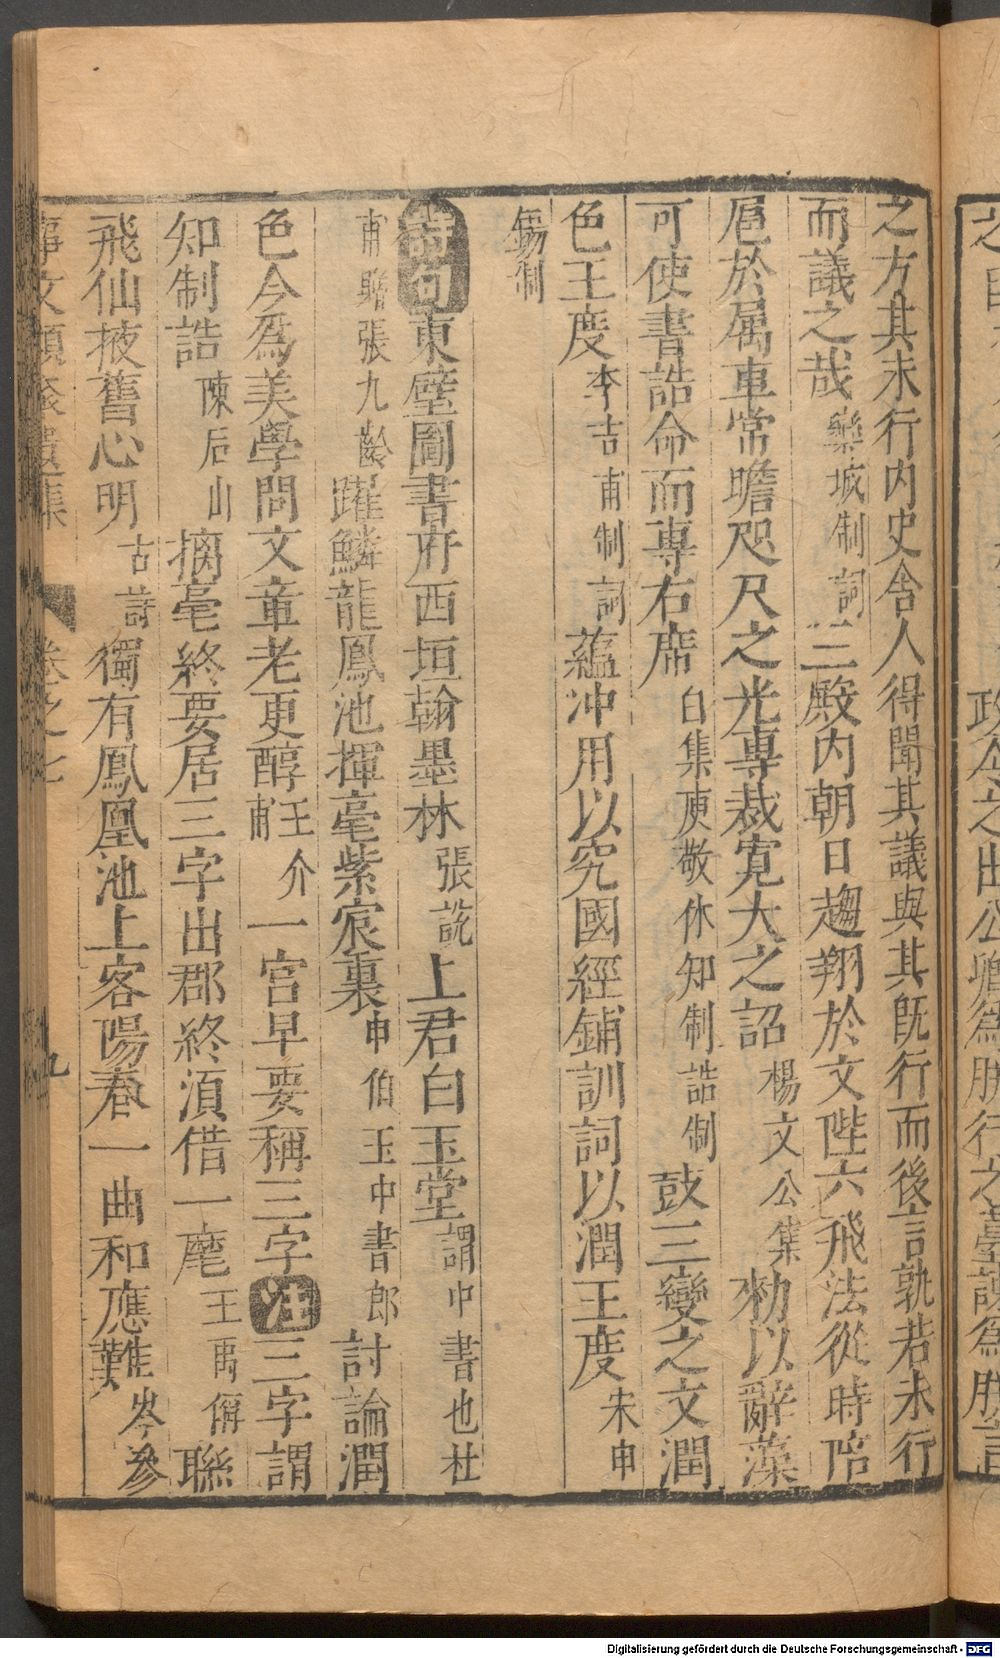 之方其未行内史舎人得聞其議與其旣行而後言孰若未行
而議之哉欒城制詞三殿内朝日趨翔於文陛六飛法從時陪
扈於属車常瞻咫尺之光專裁寛大之詔楊文公集勑以辭藻
可使書誥命而專右席白集庾敬休知制誥制鼓三變之文潤
色王度李吉甫制詞蘊冲用以究國經鋪訓詞以潤王度朱申
錫制
詩句東壁圖書府西垣翰墨林張説上君白玉堂謂中書也杜
甫贈張九齡躍鱗龍鳳池揮毫紫宸裏申伯玉中書郎討論潤
色今爲美學問文章老更醇王介甫一宮早要稱三字注三字謂
知制誥陳后山摛毫終要居三字出郡終須借一麾王禹偁聯
飛仙掖舊心明古詩獨有鳳凰池上客陽春一曲和應難岑參
事文類聚遺集 卷之七 九
政令之出公
勝行之臺諫爲勝言
Digitalisierung gefördert durch die Deutsche Forschungsgemeinschaft - DFG